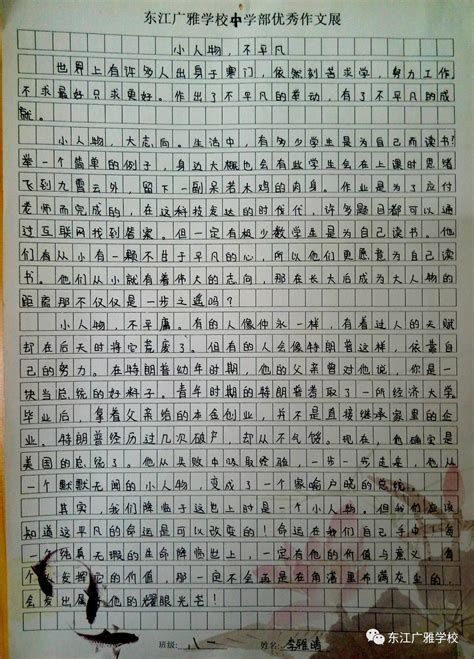 东江广雅学校中学部优秀作文展
小人物,不平凡
世界上有许多人出身于寒门,依然刻苦求学,努力工作,
不求最好只求更好。作出了不平凡的举动,有了不平凡的成
就。
小人物,大志向。生活中,有多少学生是为自己而读书?
举一个简单的例子,身边大概也会有些学生会在上课时思绪
飞到九霄云外,留下一副呆若木鸡的肉身。作业是为了应付
老师而完成的,在这科技发达的时代,许多题目都可以通
过互联网找到答案。但一定有极少数学生是为自己读书。他
们有从小有一颗不甘于平凡的心,所以他们更愿意为自己读
书。他们从小就有着伟大的志向,那在长大后成为大人物的
距离那不仅仅是一步之遥吗?
小人物,不平庸。有的人像仲永一样,有着过人的天赋
却在后天时将它荒废了。但有的人会像特朗普这样,依靠自
己的努力。在特朗普幼年时期,他的父亲曾对他说,你是一
块当总统的好料子。青年时期的特朗普考取了一所经济大学。
毕业后,拿着父亲给的本金创业,并不是直接继承家里的企
业。特朗普经历过几次破产,却从不气馁。现在,他确实是
美国的总统了。他从失败中吸取经验,一步一步走来,他从
一个默默无闻的小人物,变成了一个家喻户晓的总统。
其实,我们降临于这世上也只是一个平凡人,我们应该
知道这平凡的命运是可以改变的!命运在我们自己手中,每
一个纯真无瑕的生命降临世上,一定有他的价值与意义,
个 发挥它的价值,那一定不会函是在角落里布满灰尘的,
会发出属于他的耀眼光芒!
班级: 八 姓名: 李雅晴
东江广雅学校